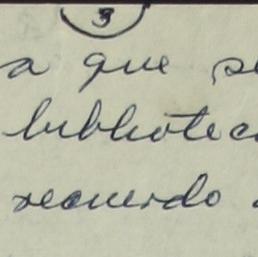 3
a que se
biblioteca
recuerdo